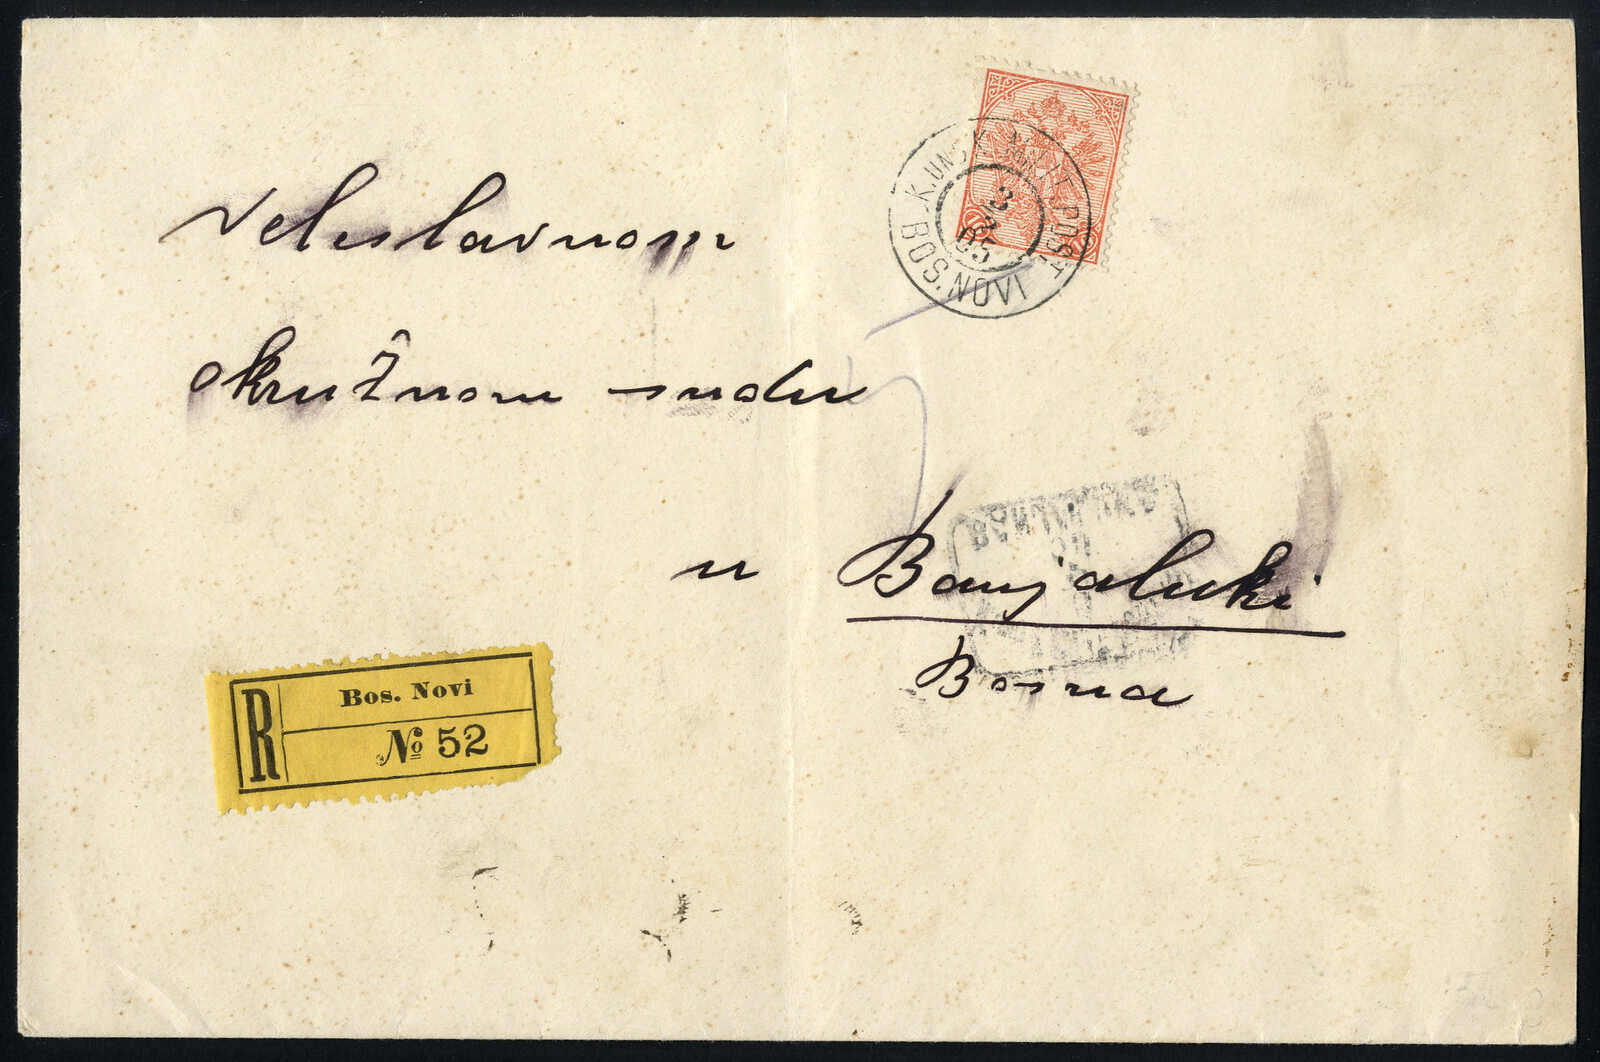 K.UND K. MILIT. POST
3
2
05
BOS. NOVI
Veleslavnom
okružnom sudu
u Banjaluki
Bosna
R
Bos. Novi
№ 52